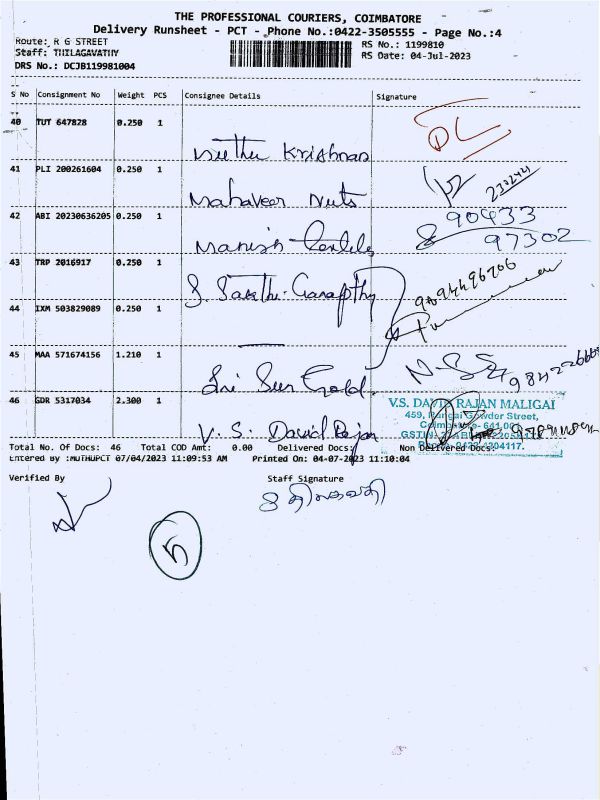 THE PROFESSIONAL COURIERS, COIMBATORE
Delivery Runsheet - PCT - Phone No.:0422-3505555 - Page No.:4
Route: R G STREET
Staff: THILAGAVATHY
DRS No.: DCJB119981004
RS No.: 1199810
RS Date: 04-Jul-2023
S No Consignment No Weight PCS Consignee Details Signature
40 TUT 647828 0.250 1
Muthu Krishnan
41 PLI 200261604 0.250 1
Mahaveer Nuts
230241
42 ABI 20230636205 0.250 1
Manish
90433
97302
43 TRP 2016917 0.250 1
S. Ganapthy
9894496706
44 IXM 503829089 0.250 1
45 MAA 571674156 1.210 1
Sri Sun Gold
46 GDR 5317034 2.300 1
V. S. David Rajan
V.S. DAVID RAJAN MALIGAI
459, Rangai Gowder Street,
Coimbatore- 641 001
GSTIN
Total No. Of Docs: 46 Total COD Amt: 0.00 Delivered Docs: Non Delivered Docs:
Entered By :MUTHUPCT 07/04/2023 11:09:53 AM Printed On: 04-07-2023 11:10:04
Verified By Staff Signature